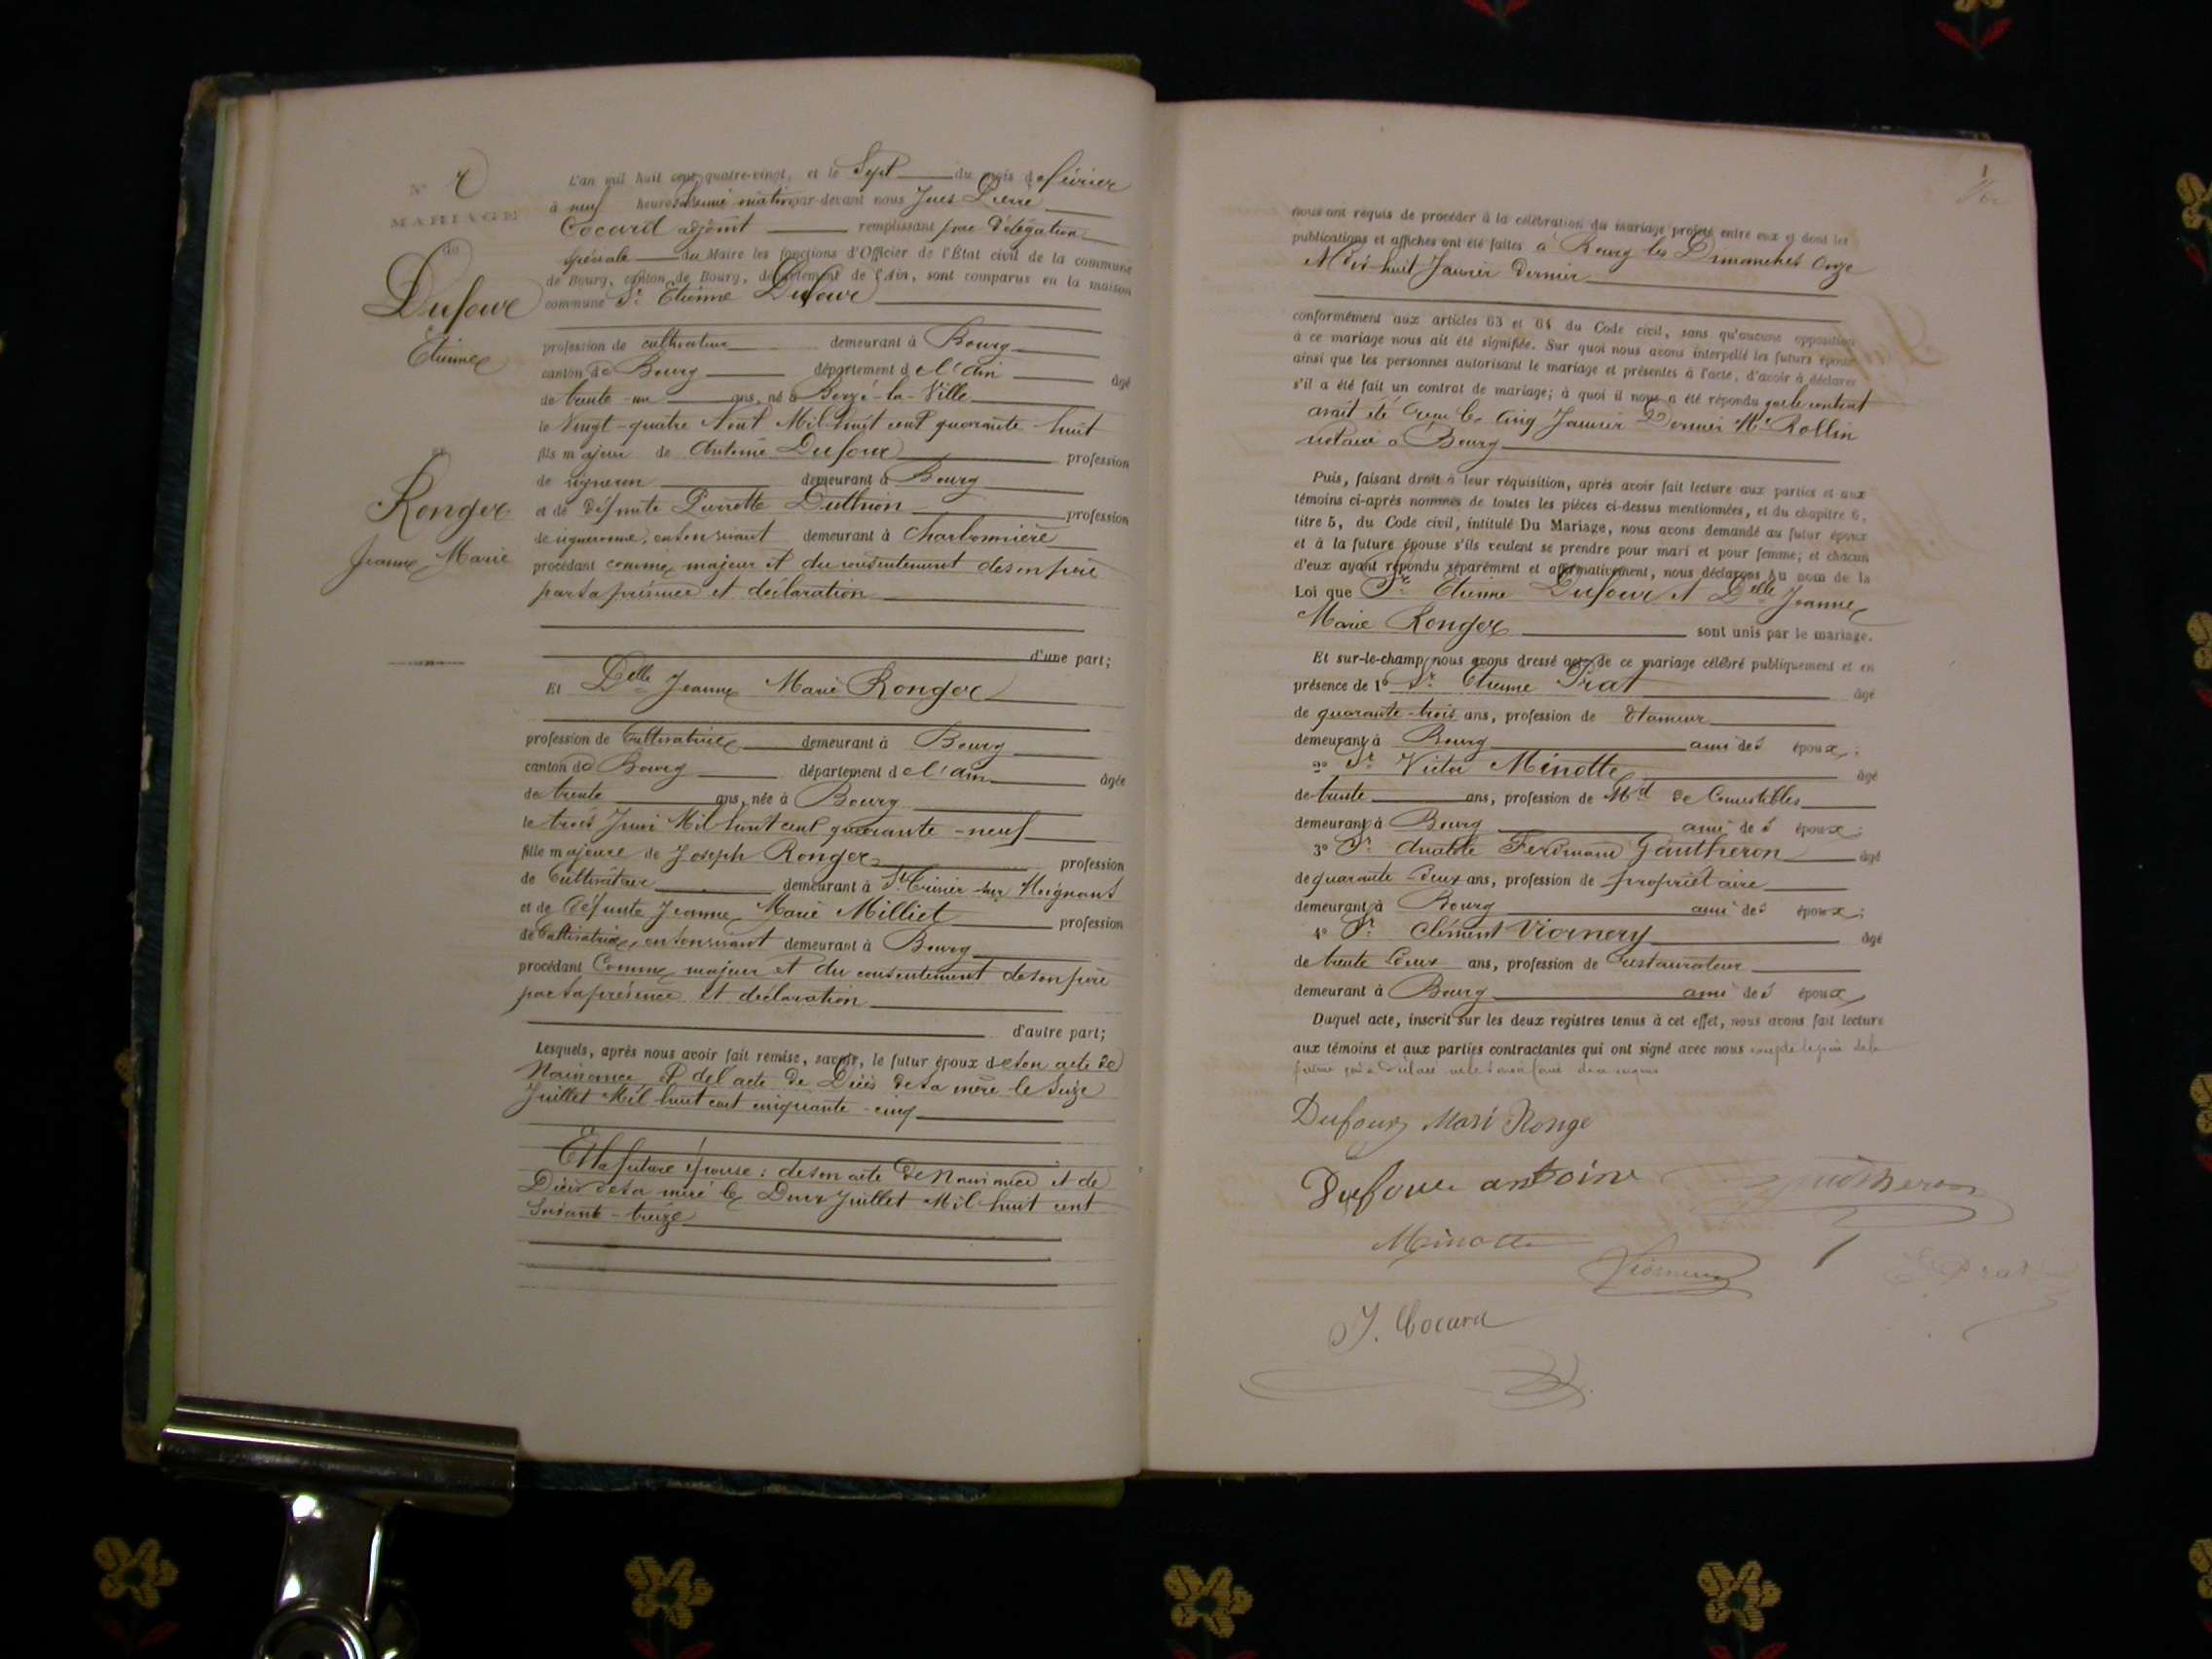 N° 
MARIAGE
de
Dufour
Etienne
et
Ronger
Jeanne Marie
L'an mil huit cent quatre-vingt, et le Sept du mois de février
à neuf heures du matin par-devant nous Jules Pierre
Cocard adjoint remplissant par délégation
spéciale du Maire les fonctions d'Officier de l'État civil de la commune
de Bourg, canton de Bourg, département de l'Ain, sont comparus en la maison
commune Sr. Etienne Dufour
profession de cultivateur demeurant à Bourg
canton de Bourg département de l'ain âgé
de trente-un ans, né à Berzé-la-Ville
le Vingt-quatre Août Mil huit cent quarante-huit
fils majeur de Antoine Dufour profession
de vigneron demeurant à Bourg
et de défunte Pierrotte Duthion profession
de vigneronne, en son vivant demeurant à Charbonnière
procédant comme majeur et du consentement de son père
par sa présence et déclaration
d'une part;
Et Delle Jeanne Marie Ronger
profession de Cultivatrice demeurant à Bourg
canton de Bourg département de l'ain âgée
de trente ans, née à Bourg
le trois Juin Mil huit cent quarante-neuf
fille majeure de Joseph Ronger profession
de Cultivateur demeurant à St. Trivier sur Moignans
et de défunte Jeanne Marie Milliet profession
de Cultivatrice, en son vivant demeurant à Bourg
procédant Comme majeur et du consentement de son père
par sa présence et déclaration
d'autre part;
Lesquels, après nous avoir fait remise, savoir, le futur époux de son acte de
Naissance et de l'acte de Décès de sa mère le Seize
Juillet Mil huit cent cinquante-cinq
Et la future épouse: de son acte de Naissance et de
Décès de sa mère le Deux Juillet Mil huit cent
Soixante-treize
nous ont requis de procéder à la célébration du mariage projeté entre eux et dont les
publications et affiches ont été faites à Bourg les Dimanches Onze
et Dix huit Janvier Dernier
conformément aux articles 63 et 64 du Code civil, sans qu'aucune opposition
à ce mariage nous ait été signifiée. Sur quoi nous avons interpellé les futurs époux
ainsi que les personnes autorisant le mariage et présentes à l'acte, d'avoir à déclarer
s'il a été fait un contrat de mariage; à quoi il nous a été répondu que le contrat
avait été reçu le Cinq Janvier Dernier Me Rollin
notaire à Bourg
Puis, faisant droit à leur réquisition, après avoir fait lecture aux parties et aux
témoins ci-après nommés de toutes les pièces ci-dessus mentionnées, et du chapitre 6,
titre 5, du Code civil, intitulé Du Mariage, nous avons demandé au futur époux
et à la future épouse s'ils veulent se prendre pour mari et pour femme; et chacun
d'eux ayant répondu séparément et affirmativement, nous déclarons Au nom de la
Loi que Sr. Etienne Dufour et Delle Jeanne
Marie Ronger sont unis par le mariage.
Et sur-le-champ, nous avons dressé acte de ce mariage célébré publiquement et en
présence de 1° Sr. Etienne Prat âgé
de quarante-trois ans, profession de Etameur
demeurant à Bourg ami des époux;
2° Sr. Victor Minotte âgé
de trente ans, profession de Md de Comestibles
demeurant à Bourg ami des époux;
3° Sr. Ferdinand Gautheron âgé
de quarante deux ans, profession de propriétaire
demeurant à Bourg ami des époux;
4° Sr. Clément Viornery âgé
de trente deux ans, profession de restaurateur
demeurant à Bourg ami des époux
Duquel acte, inscrit sur les deux registres tenus à cet effet, nous avons fait lecture
aux témoins et aux parties contractantes qui ont signé avec nous excepté le père de la
Dufour Mari Ronge
Dufour antoine Gautheron
Minotte
Viornery
E Prat
J. Cocard